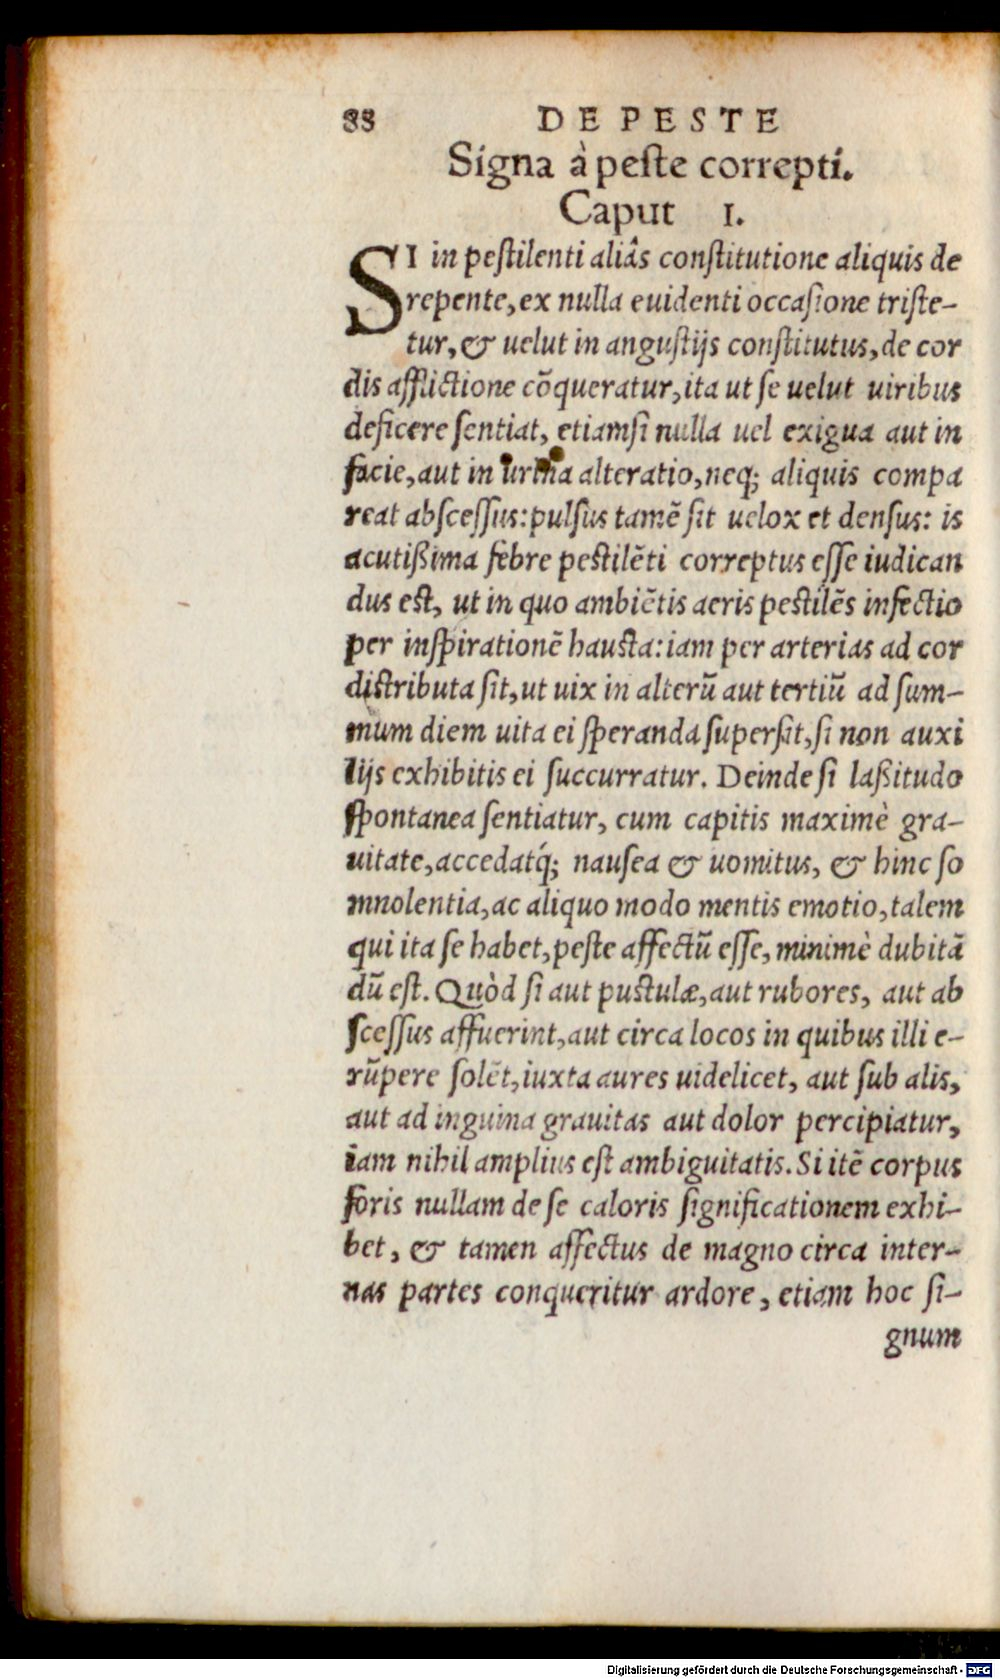 88 DE PESTE
Signa à peste correpti.
Caput I.
SI in pestilenti aliâs constitutione aliquis de
repente, ex nulla euidenti occasione triste-
tur, & uelut in angustijs constitutus, de cor
dis afflictione cõqueratur, ita ut se uelut uiribus
deficere sentiat, etiamsi nulla uel exigua aut in
facie, aut in urina alteratio, neq; aliquis compa
reat abscessus: pulsus tamẽ sit uelox et densus: is
acutißima febre pestilẽti correptus esse iudican
dus est, ut in quo ambiẽtis aeris pestilẽs infectio
per inspirationẽ hausta: iam per arterias ad cor
distributa sit, ut uix in alterũ aut tertiũ ad sum-
mum diem uita ei speranda supersit, si non auxi
lijs exhibitis ei succurratur. Deinde si laßitudo
spontanea sentiatur, cum capitis maximè gra-
uitate, accedatq́; nausea & uomitus, & hinc so
mnolentia, ac aliquo modo mentis emotio, talem
qui ita se habet, peste affectũ esse, minimè dubitã
dũ est. Quòd si aut pustulæ, aut rubores, aut ab
scessus affuerint, aut circa locos in quibus illi e-
rũpere solẽt, iuxta aures uidelicet, aut sub alis,
aut ad inguina grauitas aut dolor percipiatur,
iam nihil amplius est ambiguitatis. Si itẽ corpus
foris nullam de se caloris significationem exhi-
bet, & tamen affectus de magno circa inter-
nas partes conqueritur ardore, etiam hoc si-
gnum
Digitalisierung gefördert durch die Deutsche Forschungsgemeinschaft - DFG